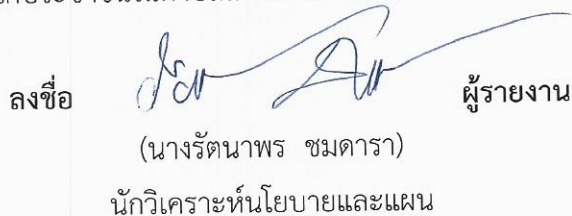 ลงชื่อ ผู้รายงาน
(นางรัตนาพร ชมดารา)
นักวิเคราะห์นโยบายและแผน